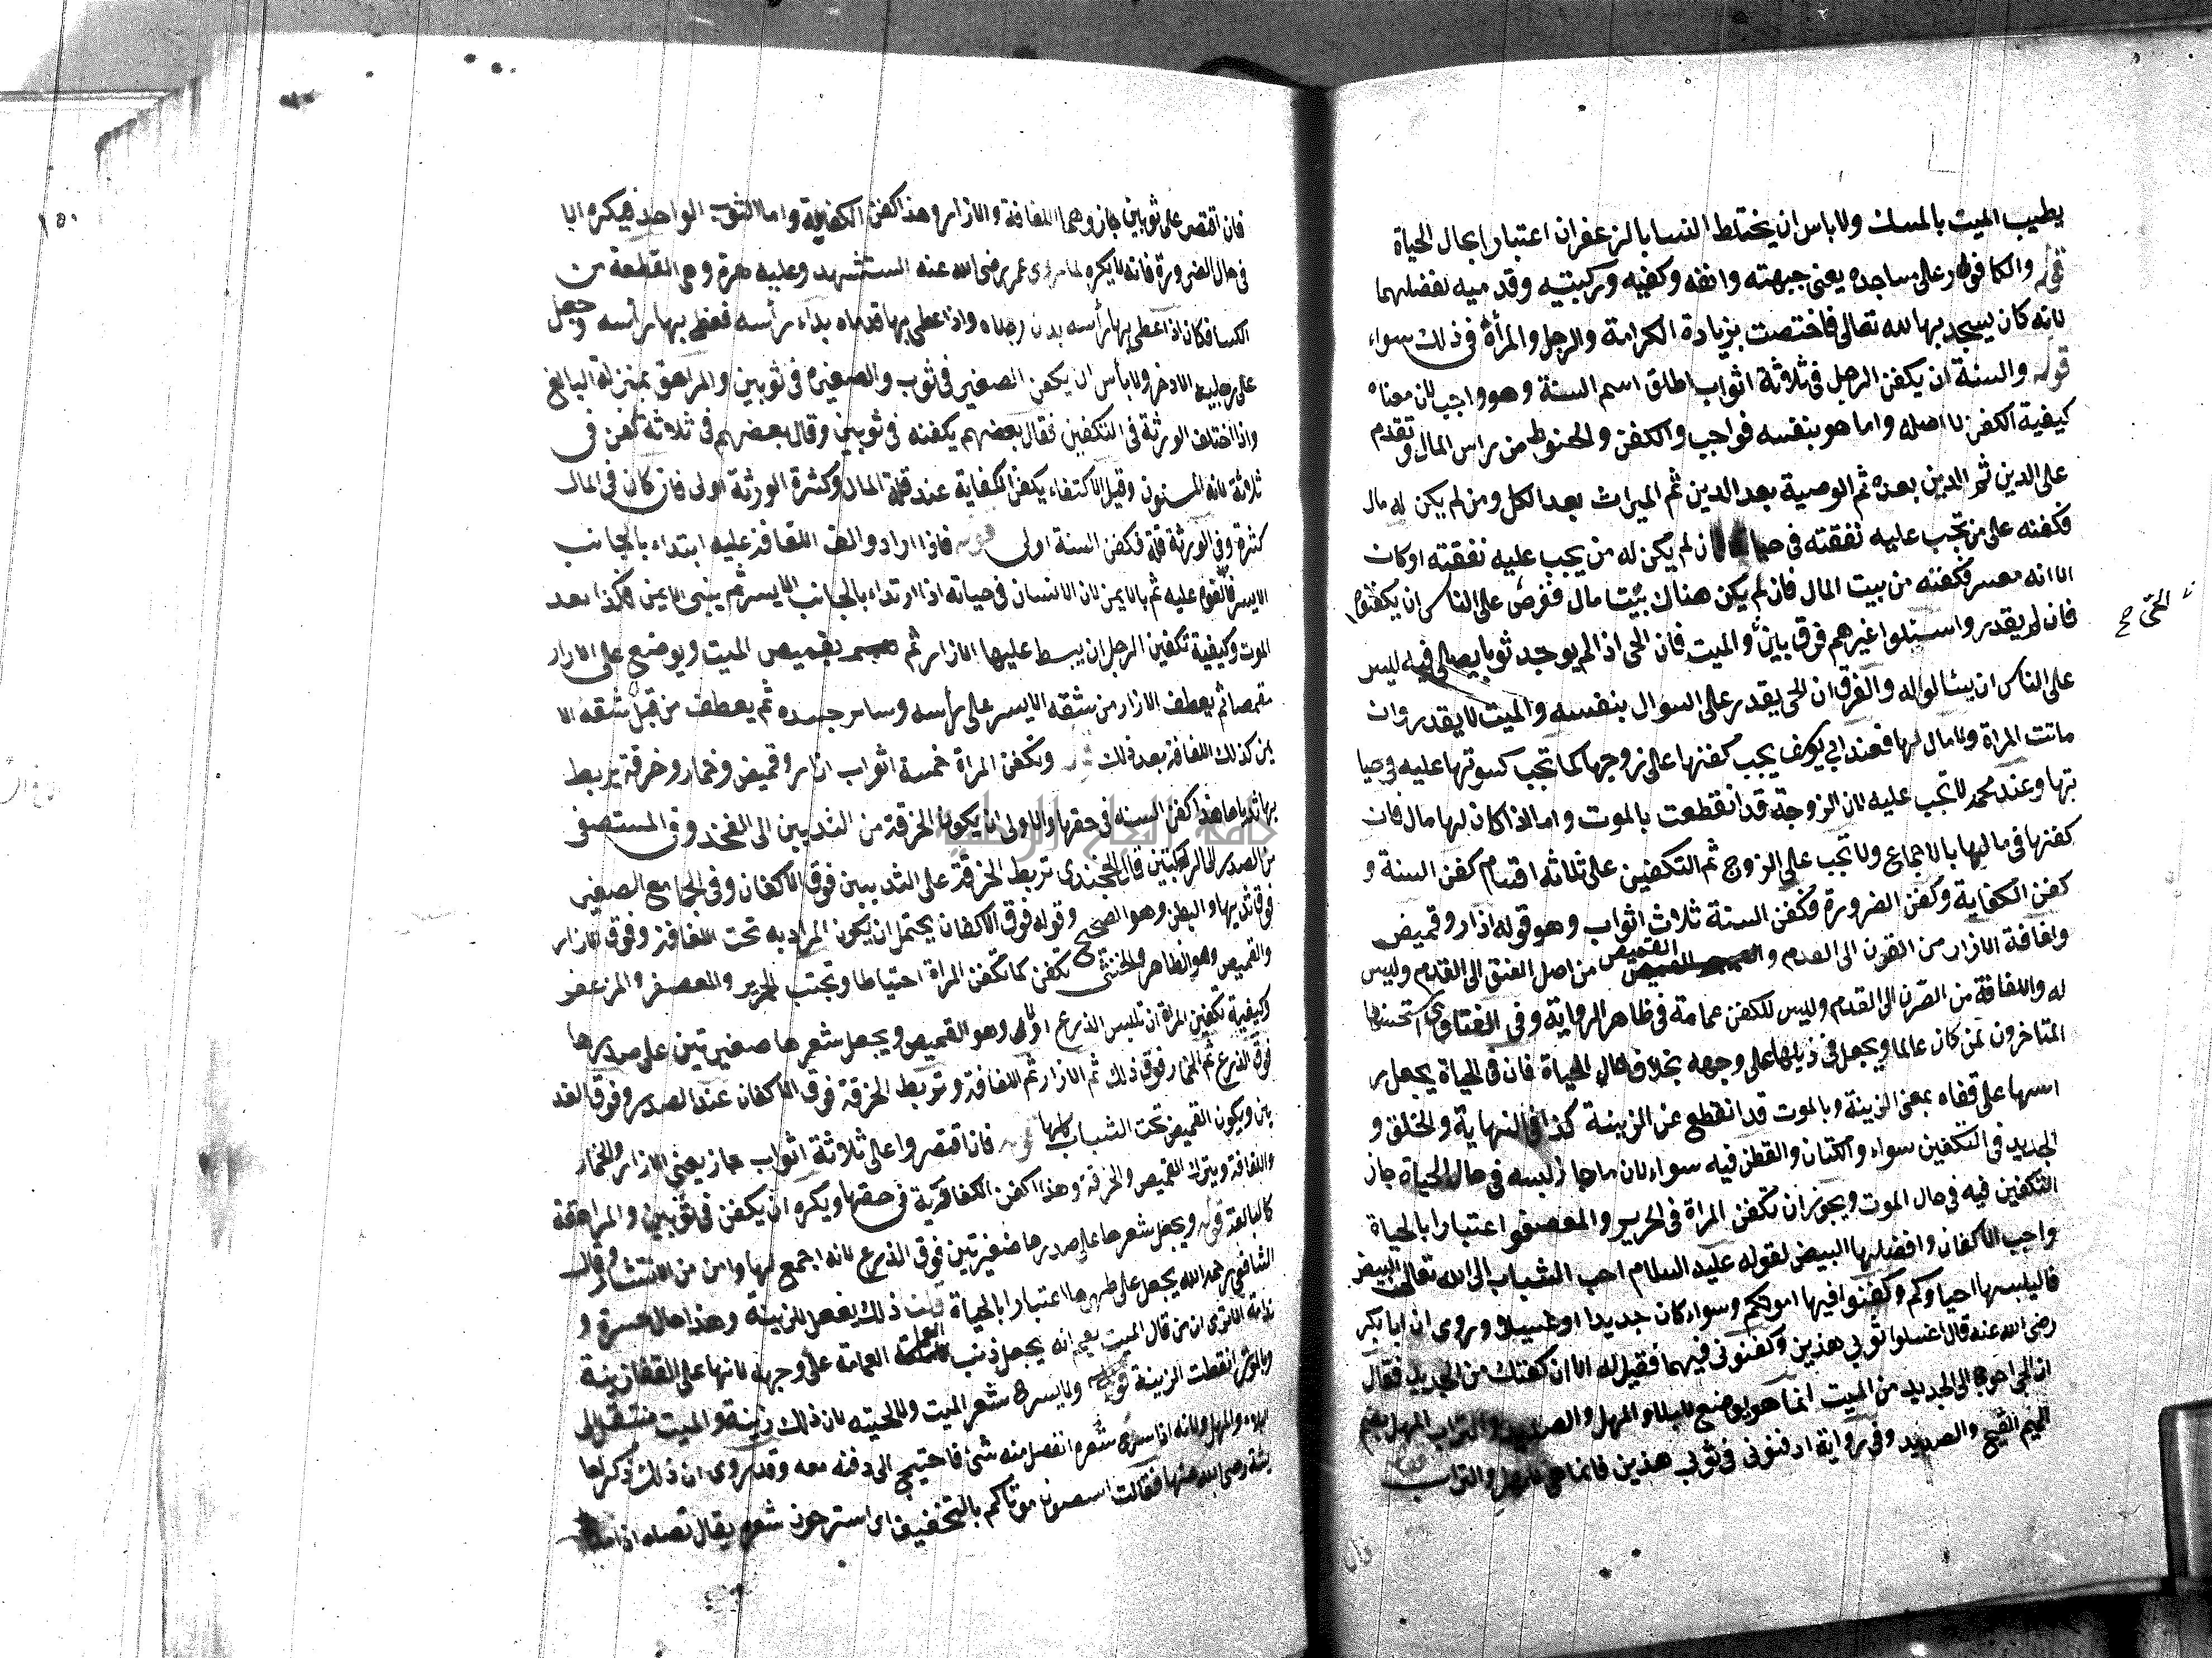 يطيب الميت بالمسك ولا باس ان يختلط النسا بالزعفران اعتبارا بحال الحياة
قوله والكافور على مساجده يعني جبهته وانفه وكفيه وركبتيه وقدميه لفضلهما
لانه كان يسجد بها لله تعالى فاختصت بزيادة الكرامة والرجل والمرأة في ذلك سواء
قوله والسنة ان يكفن الرجل في ثلاثة اثواب اطلق اسم السنة وهو واجب لان معناه
كيفية الكفن لا اصله واما هو بنفسه فواجب والكفن والحنوط من راس المال وتقدم
على الدين ثم الدين بعده ثم الوصية بعد الدين ثم الميراث بعد الكل ومن لم يكن له مال
فكفنه على من تجب عليه نفقته في حياته فان لم يكن له من يجب عليه نفقته او كان
الا انه معسر فكفنه من بيت المال فان لم يكن هناك بيت مال ففرض على الناس ان يكفنوه
فان لم يقدروا سئلوا غيرهم فرقا بين والميت فان الحي اذا لم يوجد ثوبا يصلي فيه ليس
الحي صح
على الناس ان يسالوا له والفرق ان الحي يقدر على السوال بنفسه والميت لا يقدر وان
ماتت المراة ولا مال لها فعند ابي يوسف يجب كفنها على زوجها كما تجب كسوتها عليه في حيا
تها وعند محمد لا تجب عليه لان الزوجة قد انقطعت بالموت واما اذا كان لها مال فان
كفنها في مالها بالاجماع ولا تجب على الزوج ثم التكفين على ثلاثه اقسام كفن السنة و
كفن الكفاية وكفن الضرورة فكفن السنة ثلاث اثواب وهو قوله اذار وقميص
ولفافة الازار من القرن الى القدم والقميص من اصل العنق الى القدم وليس
له واللفافة من القرن الى القدم وليس للكفن عمامة في ظاهر الرواية وفي الفتاوى استحسنها
المتاخرون لمن كان عالما ويجعل في ذيلها على وجهه بخلاف حال الحياة فان في الحياة يجعل ر
اسها على قفاه بمعنى الزينة وبالموت قد انقطع عن الزينة كذا في النهاية والخلق و
الجديد في التكفين سواء والكتان والقطن فيه سواء لان ما جاز لبسه في حال الحياة جاز
التكفين فيه في حال الموت ويجوز ان تكفن المراة في الحرير والمعصفر اعتبارا بالحياة
واحب الاكفان وافضلها البيض لقوله عليه السلام احب الثياب الى الله تعالى البيض
فاليلبسها احياوكم وكفنوا فيها امواتكم وسواء كان جديدا او غسيلا وروي ان ابا بكر
رضي الله عنه قال اغسلوا ثوبي هذين وكفنوني فيهما فقيل له الا ان كفنك من الجديد فقال
ان الحي احوج الى الجديد من الميت انما هو يوضع للبلا والمهل والصديد والتراب المهل بضم
الميم القيح والصديد وفي رواية ادفنوني في ثوبي هذين فانما هي للمهل والتراب
فان
١٥٠
فان اقتصر على ثوبين جاز وهما اللفافة والازار وهذا كفن الكفاية واما الثوب الواحد فيكره الا
في حال الضرورة فانه لا يكره لما روى عمر رضي الله عنه استشهد وعليه نمرة وهي القطعة من
الكسا فكان اذا غطي بها رأسه بدت رجلاه واذا غطي بها قدماه بداء رأسه فغطي بها رأسه وجعل
على رجليه الاذخر ولا بأس ان يكفن الصغير في ثوب والصغيرة في ثوبين والمراهق بمنزلة البالغ
واذا اختلف الورثة في التكفين فقال بعضهم يكفنه في ثوبين وقال بعضهم في ثلاثة كفن في
ثلاثة لانه المسنون وقيل الاكتفاء بكفن الكفاية عند قلة المال وكثرة الورثة اولى فان كان في المال
كثرة وفي الورثة قلة فكفن السنة اولى قوله فاذا ارادوا لف اللفافة عليه ابتداء بالجانب
الايسر فالقوه عليه ثم بالايمن لان الانسان في حياته اذا ارتداء بالجانب الايسر ثم يثني الايمن فكذا بعد
الموت وكيفية تكفين الرجل ان يبسط عليها الازار ثم بقميص الميت ويوضع على الازار
مقمصا ثم يعطف الازار من شقه الايسر على رأسه وساير جسده ثم يعطف من قبل شقه الا
يمن كذلك اللفافة بعد ذلك قوله وتكفن المراة خمسة اثواب ازار وقميص وخمار وخرقة يربط
بها ثدياها هذا كفن السنه في حقها والاولى ان يكون الخرقة من الثديين الى الفخذ وفي المستصفى
من الصدر الى الركبتين قال الخجندي تربط الخرقة على الثديين فوق الاكفان وفي الجامع الصغير
فوق ثدييها والبطن وهو الصحيح وقوله فوق الاكفان يحتمل ان يكون المراد به تحت اللفافة وفوق الازار
والقميص وهو الظاهر والخنثى تكفن كما تكفن المراة احتياطا وتجتنب الحرير والمعصفر والمزعفر
وكيفية تكفين المراة ان تلبس الذرع اولا وهو القميص ويجعل شعرها ضفيرتين على صدرها
فوق الذرع ثم الخمار فوق ذلك ثم الازار ثم اللفافة وتربط الخرقة فوق الاكفان عند الصدر وفوق الثد
يين ويكون القميص تحت الثياب كلها قوله فان اقتصروا على ثلاثة اثواب جاز يعني الازار والخمار
واللفافة ويترك القميص والخرقة وهذا كفن الكفاية في حقها ويكره ان يكفن في ثوبين والمراهقة
كالبالغة قوله ويجعل شعرها على صدرها ضفيرتين فوق الذرع لانه اجمع لها وامن من الانتشار وقال
الشافعي رحمه الله يجعل على ظهرها اعتبارا بالحياة قلنا ذلك يفعل للزينة وهذا حال حسرة و
ندامة الا ترى ان من قال الميت يعمم انه يجعل ذنب العمامة على وجهه لانها على القفا زينة
وبالموت انقطت الزينة قوله ولا يسرح شعر الميت ولا لحيته لان ذلك زينة والميت منتقل الى
البلاء والمهل ولانه اذا سرح شعره انفصل منه شئ فاحتيج الى دفنه معه وقد روى ان ذلك ذكر لعا
يشة رضي الله عنها فقالت اتنصون موتاكم بالتخفيف اي استرحون شعرهم يقال نصاه اذا